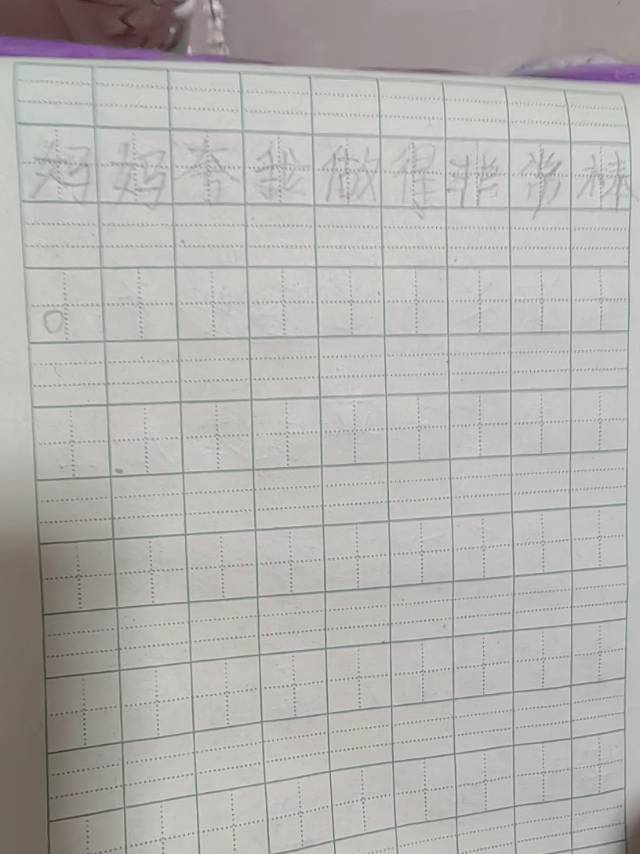 妈妈夸我做得非常棒
。